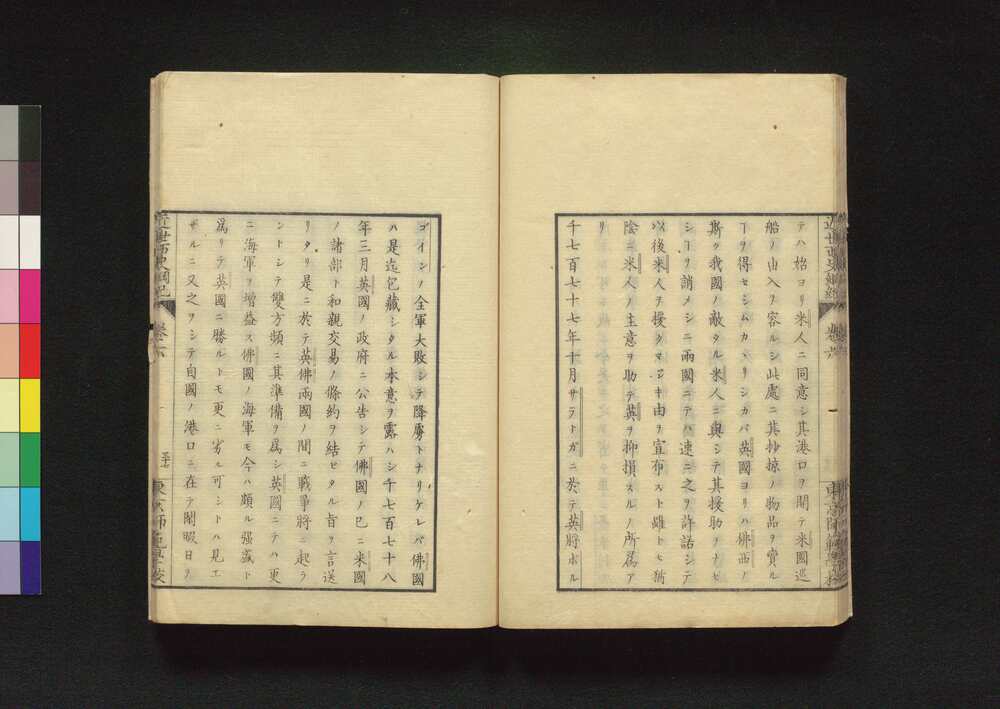 テハ始ヨリ米人ニ同意シ其港口ヲ開テ米國巡
船ノ由入ヲ容ルシ此處ニ其抄掠ノ物品ヲ賣ル
ヿヲ得セシムカヽリシカバ英國ヨリハ佛西ノ
斯ク我國ノ敵タル米人ニ與シテ其援助ヲナセ
シヿヲ誚メシニ兩國ニテハ速ニ之ヲ許諾シテ
以後米人ヲ援クマジキ由ヲ宣布スト雖トモ猶
陰ニ米人ノ主意ヲ助テ英ヲ抑損スルノ所爲ア
リ
千七百七十七年十月サラトガニ於テ英將ボル
ゴインノ全軍大敗シテ降虜トナリケレバ佛國
ハ是迄包藏シタル本意ヲ露ハシ千七百七十八
年三月英國ノ政府ニ公告シテ佛國ノ已ニ米國
ノ諸部ト和親交易ノ條約ヲ結ビタル旨ヲ言送
リタリ是ニ於テ英佛兩國ノ間ニ戰爭將ニ起ラ
ントシテ雙方頻ニ其準備ヲ爲シ英國ニテハ更
ニ海軍ヲ增益ス佛國ノ海軍モ今ハ頗ル强盛ト
爲リテ英國ニ勝ルトモ更ニ劣ル可シトハ見エ
ザルニ又之ヲシテ自國ノ港口ニ在テ閑暇日ヲ
近世西史綱紀
卷六